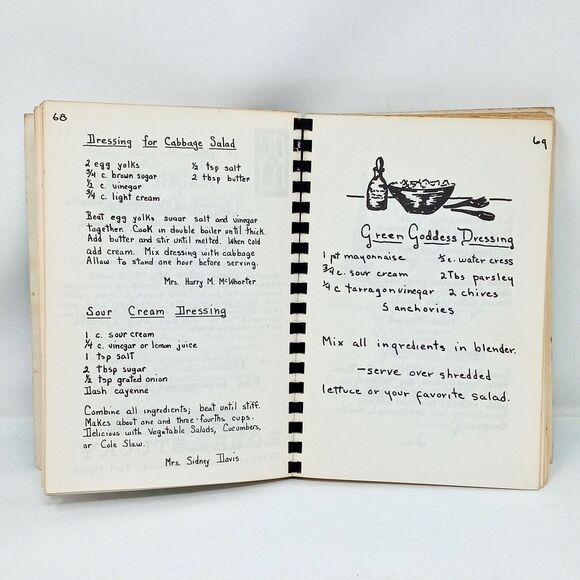 68
Dressing for Cabbage Salad
2 egg yolks ½ tsp salt
¾ c. brown sugar 2 tbsp butter
½ c. vinegar
¾ c. light cream
Beat egg yolks sugar salt and vinegar
together. Cook in double boiler until thick.
Add butter and stir until melted. When cold
add cream. Mix dressing with cabbage
Allow to stand one hour before serving.
Mrs. Harry M. McWhorter
Sour Cream Dressing
1 c. sour cream
¼ c. vinegar or lemon juice
1 tsp salt
2 tbsp sugar
½ tsp grated onion
Dash cayenne
Combine all ingredients; beat until stiff.
Makes about one and three-fourths cups.
Delicious with Vegetable Salads, Cucumbers,
or Cole Slaw.
Mrs. Sidney Davis
69
Green Goddess Dressing
1 pt mayonnaise c. water cress
¾ c. sour cream 2 Tbs parsley
¼ c tarragon vinegar 2 chives
5 anchories
Mix all ingredients in blender.
-serve over shredded
lettuce or your favorite salad.